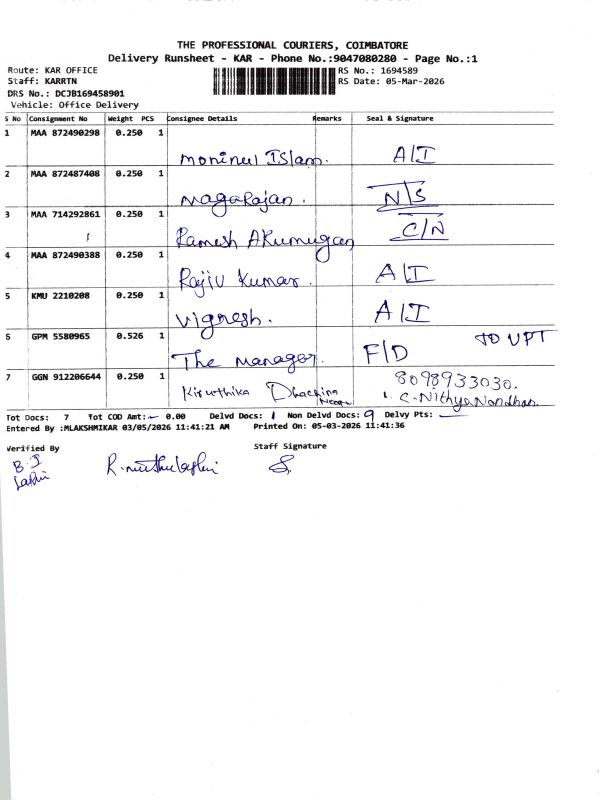 THE PROFESSIONAL COURIERS, COIMBATORE
Delivery Runsheet - KAR - Phone No.:9047080280 - Page No.:1
Route: KAR OFFICE RS No.: 1694589
Staff: KARRTN RS Date: 05-Mar-2026
DRS No.: DCJB169458901
Vehicle: Office Delivery
S No Consignment No Weight PCS Consignee Details Remarks Seal & Signature
1 MAA 872490298 0.250 1
Moninul Islam. A/I
2 MAA 872487408 0.250 1
Nagarajan. N/S
3 MAA 714292861 0.250 1
Ramesh Arumugan C/N
4 MAA 872490388 0.250 1
Rajiv Kumar. A/I
5 KMU 2210208 0.250 1
Vignesh. A/I
6 GPM 5580965 0.526 1 TO UPT
The Manager. F/D
7 GGN 912206644 0.250 1 8098933030.
Kiruthika C. Nithya Nandhan.
Tot Docs: 7 Tot COD Amt: 0.00 Delvd Docs: 1 Non Delvd Docs: 9 Delvy Pts:
Entered By :MLAKSHMIKAR 03/05/2026 11:41:21 AM Printed On: 05-03-2026 11:41:36
Verified By Staff Signature